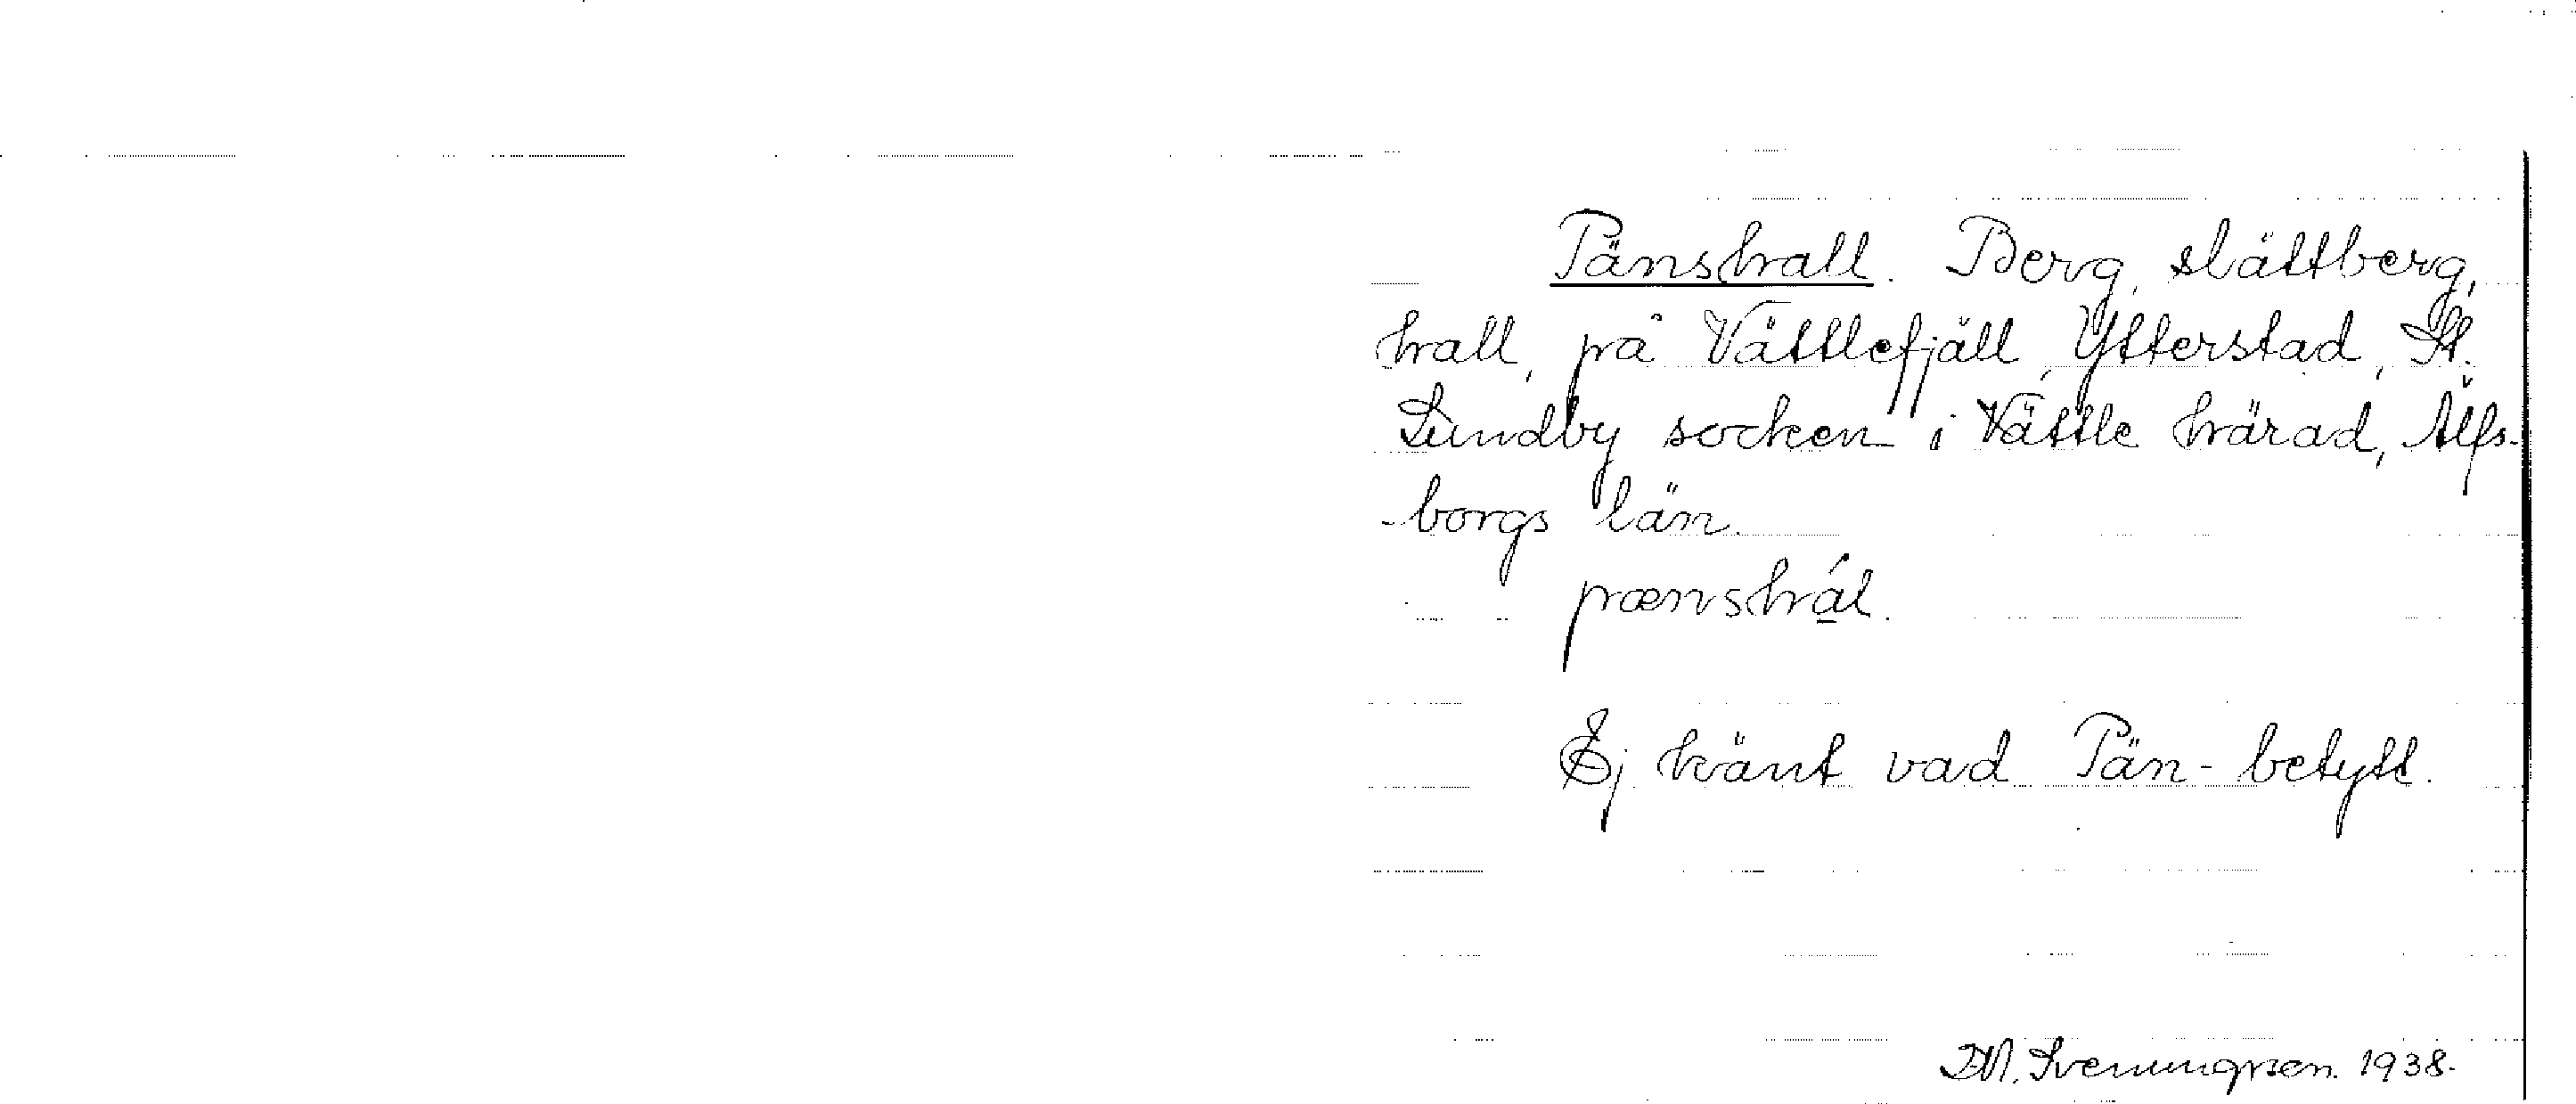 Pänshall. Berg, slättberg,
hall, på Vättlefjäll, Ytterstad, St.
Lundby socken i Vättle härad, Älfs-
-borgs län.
pænshál.
Ej känt vad Pän- betytt.
D.N. Svenungsson. 1938.